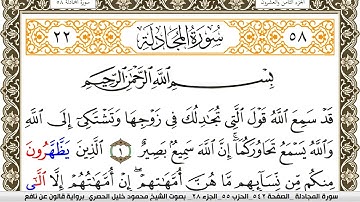 سورة المجادلة ٥٨
الجزء الثامن والعشرون
٥٨ سُورَةُ المُجَادلَةِ ٢٢
بِسْمِ اللَّهِ الرَّحْمَٰنِ الرَّحِيمِ
قَدْ سَمِعَ اَللَّهُ قَوْلَ اَلَّتِي تُجَٰدِلُكَ فِي زَوْجِهَا وَتَشْتَكِيٓ إِلَى اَللَّهِ
وَاللَّهُ يَسْمَعُ تَحَاوُرَكُمَآ إِنَّ اَللَّهَ سَمِيعٌ بَصِيرٌ ١ اَلَّذِينَ يَظَّهَّرُونَ
مِنكُم مِّن نِّسَآئِهِم مَّا هُنَّ أُمَّهَٰتِهِمْۖ إِنْ أُمَّهَٰتُهُمْ إِلَّا اَلَّٰٓي
سورة المجادلة، الصفحة ٥٤٢ الحزب ٥٥، الجزء ٢٨ بصوت الشيخ محمود خليل الحصري برواية قالون عن نافع